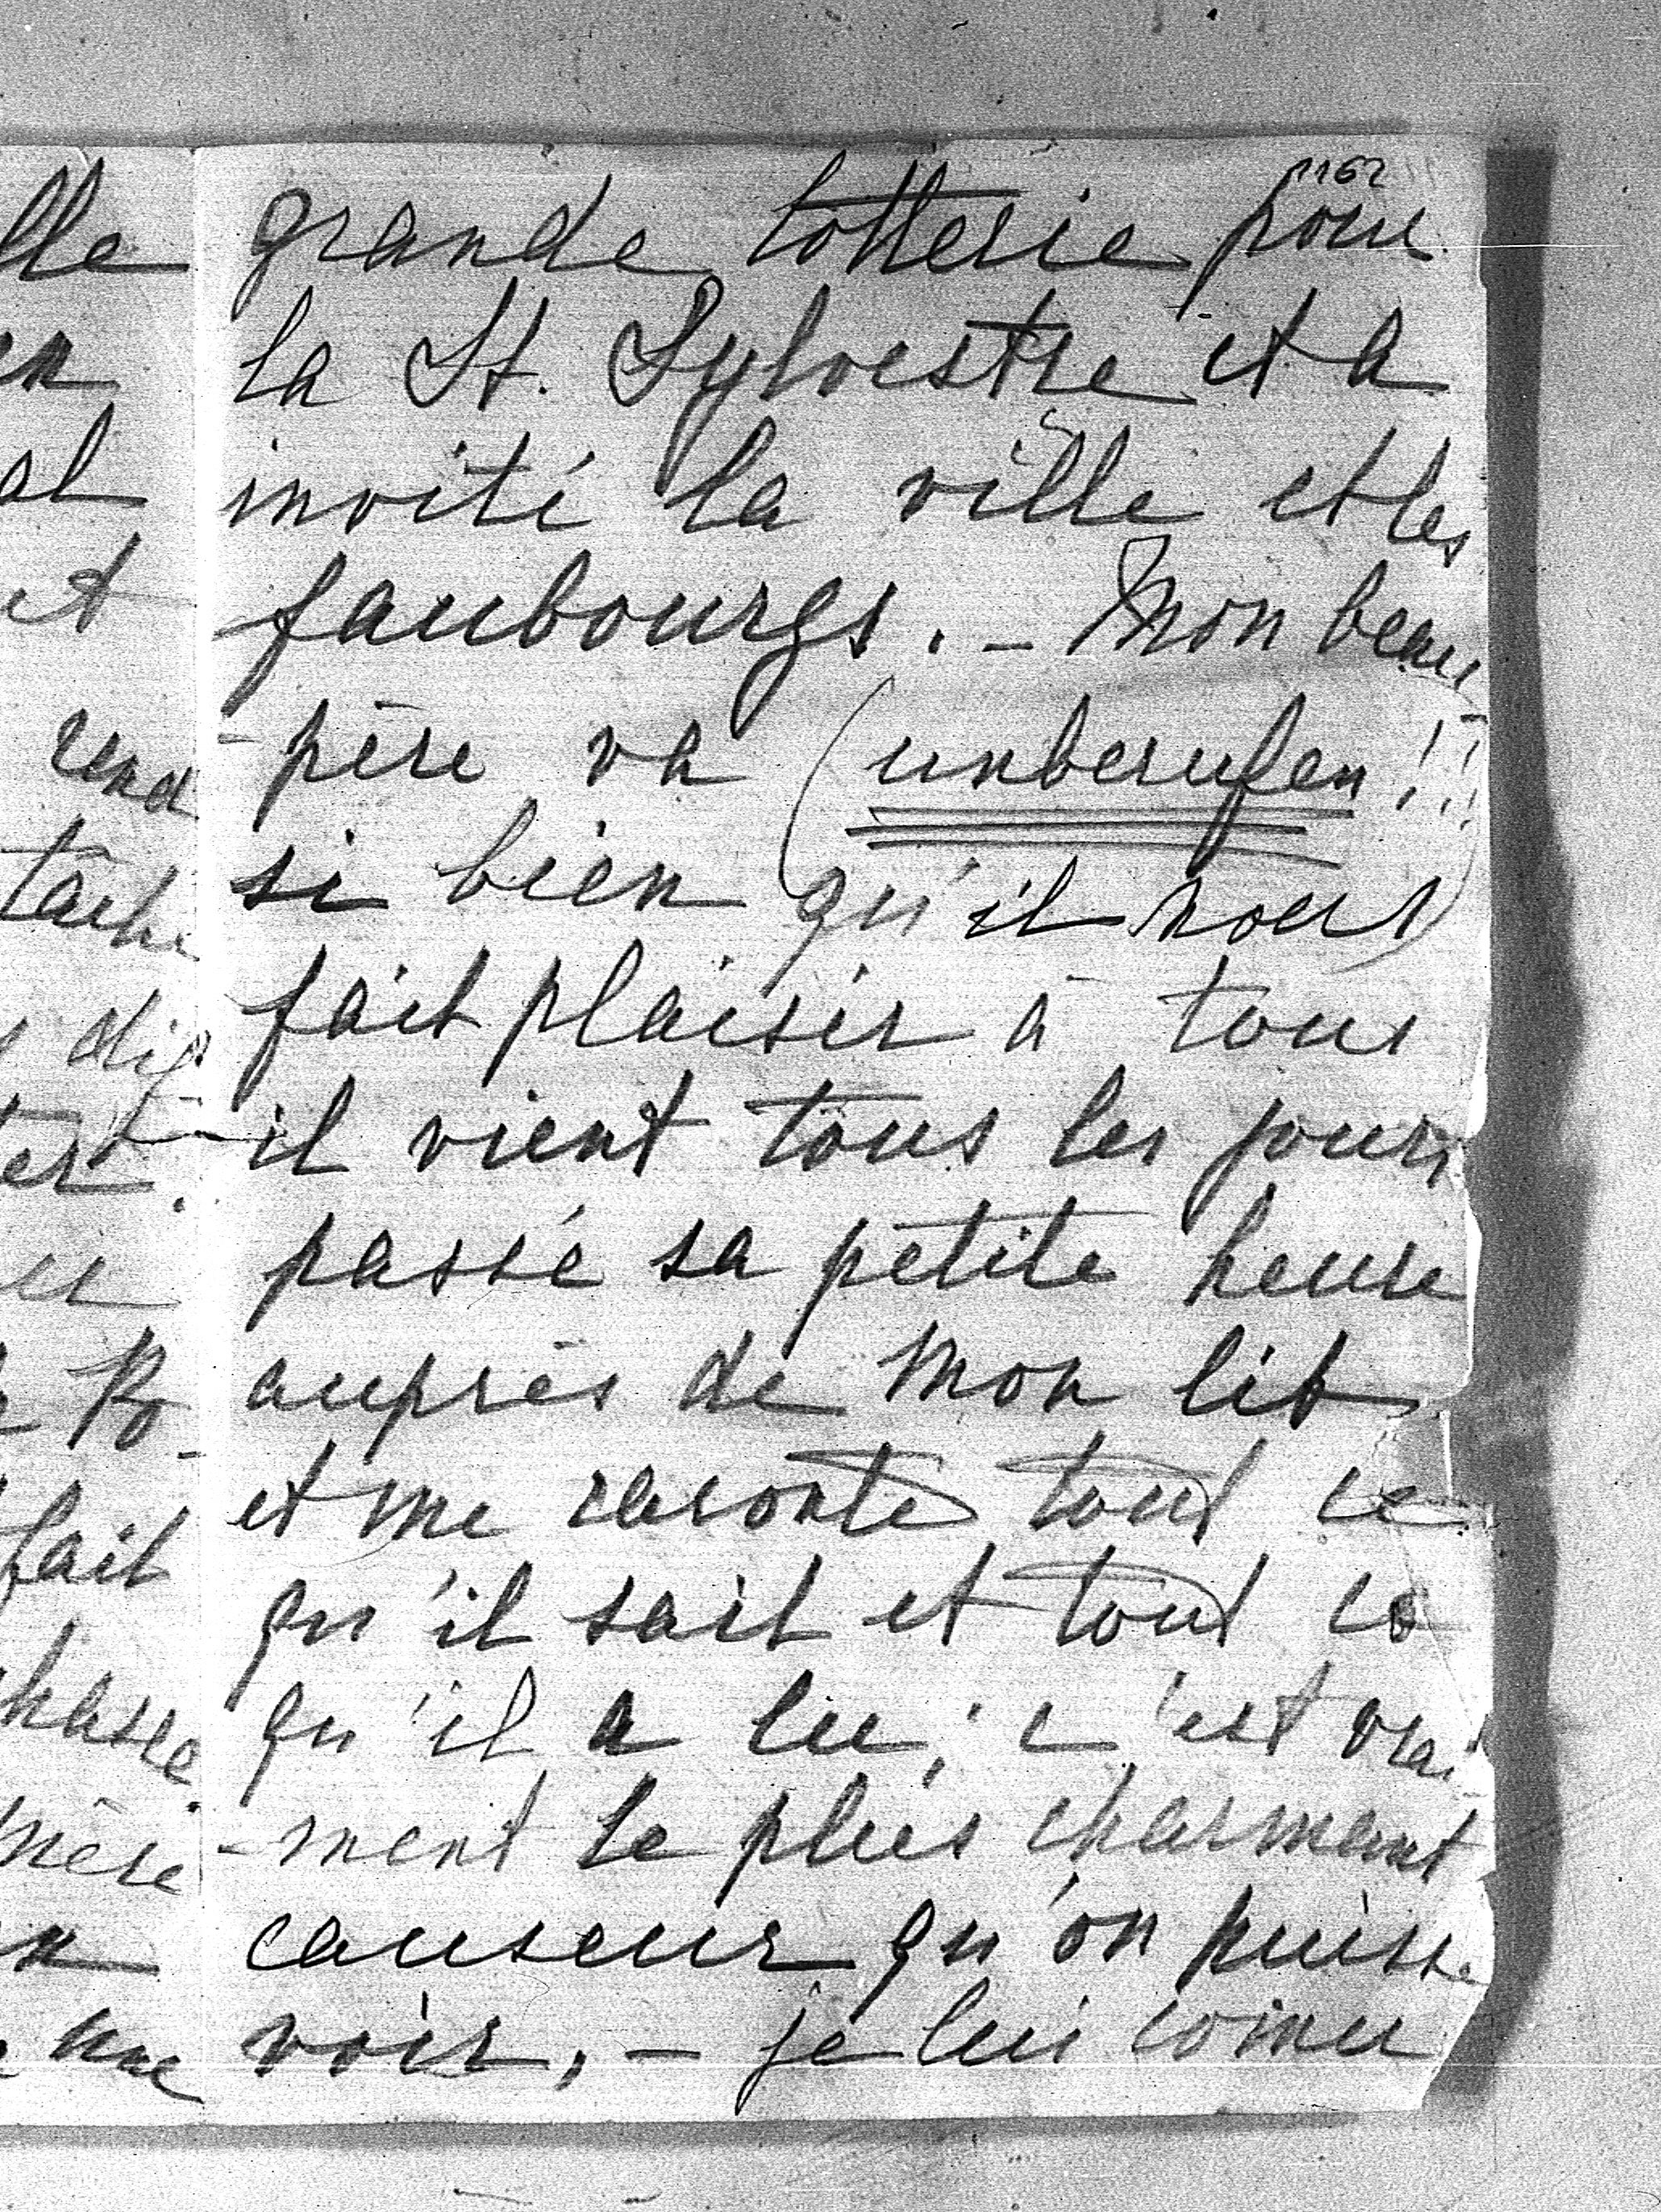 1162
grande lotterie pour
la St. Sylvestre et a
invité la ville et les
faubourgs. - Mon beau
-père va (unberufen!!!)
si bien qu'il nous
fait plaisir à tous
il vient tous les jours
passé sa petite heure
auprès de mon lit
et me raconte tout ce
qu'il sait et tout ce
qu'il a lu; c'est vrai
-ment le plus charmant
causeur qu'on puisse
voir. - je lui
lle
en
et
rend
tâche
dig
fait
chasse
mère
une